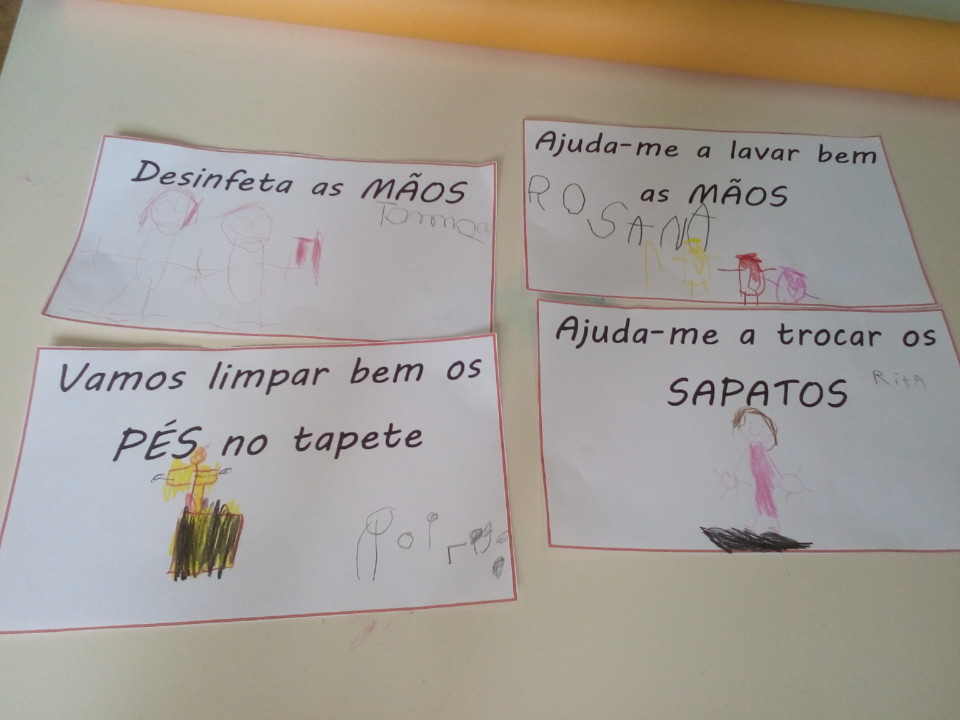 Desinfeta as MÃOS
Ajuda-me a lavar bem
as MÃOS
ROSANA
Vamos limpar bem os
PÉS no tapete
Ajuda-me a trocar os
SAPATOS
Rita